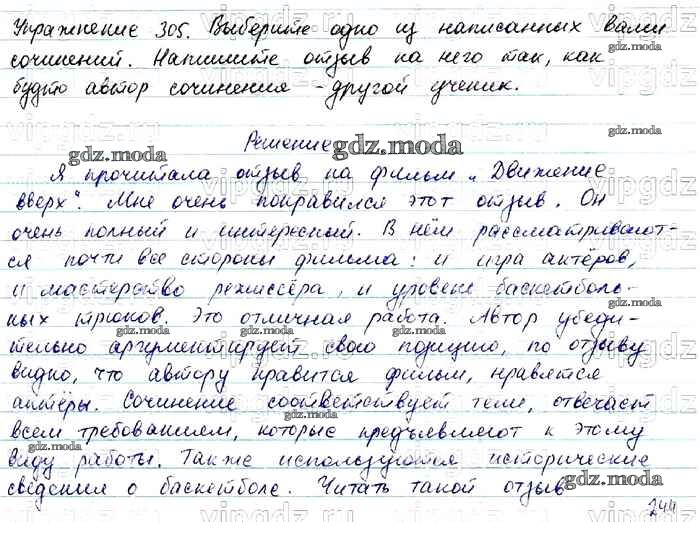 Упражнение 305. Выберите одно из написанных вами
сочинений. Напишите отзыв на него так, как
будто автор сочинения - другой ученик.
Решение
Я прочитала отзыв на фильм „Движение
вверх". Мне очень понравился этот отзыв. Он
очень полный и интересный. В нём рассматривают-
ся почти все стороны фильма: и игра актёров,
и мастерство режиссёра, и уровень баскетболь-
ных трюков. Это отличная работа. Автор убеди-
тельно аргументирует свою позицию, по отзыву
видно, что автору нравится фильм, нравятся
актёры. Сочинение соответствует теме, отвечает
всем требованиям, которые предъявляют к этому
виду работы. Также используются исторические
сведения о баскетболе. Читать такой отзыв
244
gdz.moda
gdz.moda
gdz.moda
gdz.moda
gdz.moda
gdz.moda
gdz.moda
gdz.moda
gdz.moda
gdz.moda
gdz.moda
gdz.moda
gdz.moda